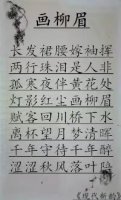 画柳眉
长发裙腰嫁袖挥
两行珠泪是人非
孤寒夜伴黄花处
灯影红尘画柳眉
赋客回川桥下水
离杯望月梦清晖
千年守待千年醉
涩涩秋风落叶陪
《现代新韵》